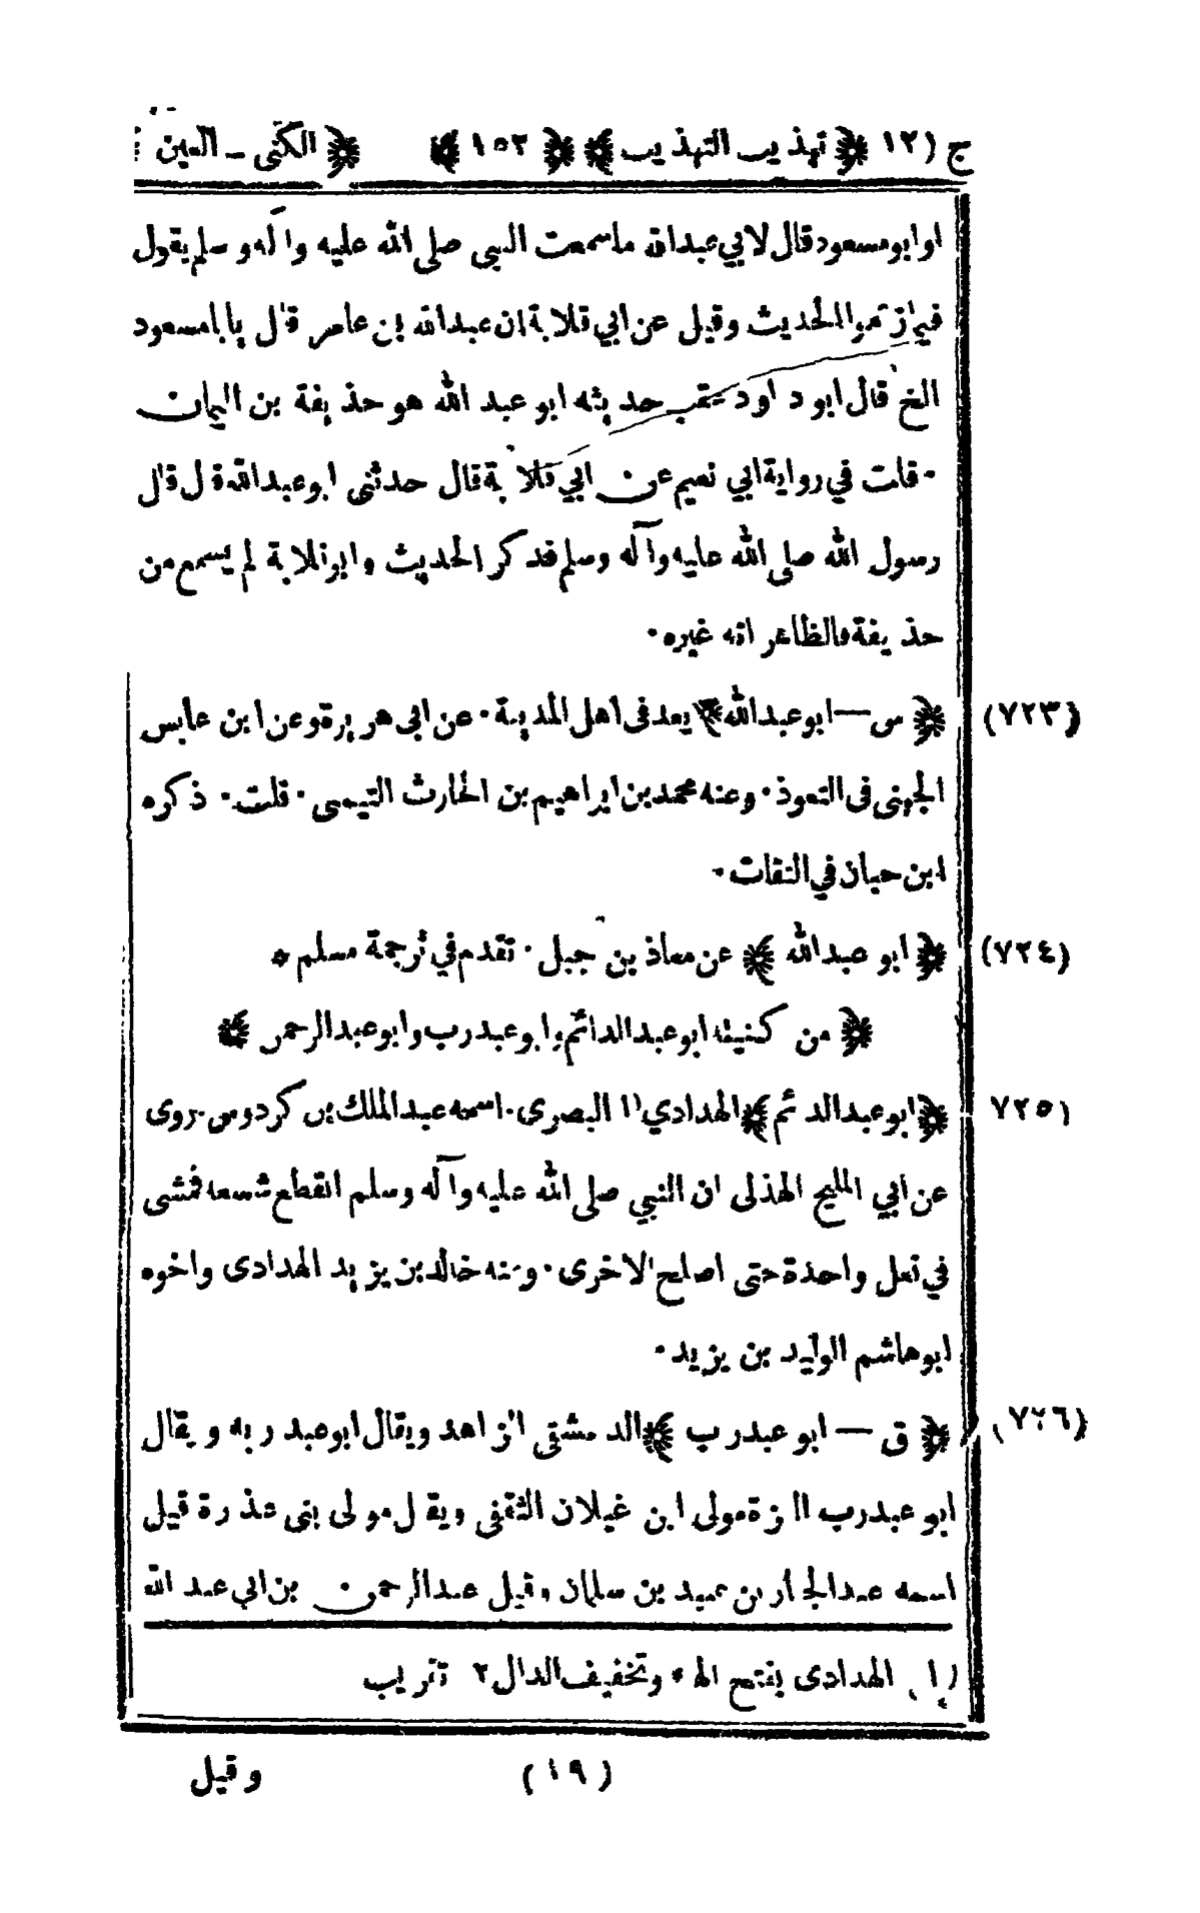 ج (١٢) ﴿تهذيب التهذيب﴾ ﴿١٥٣﴾ ﴿الكنى ـ العين
او ابو مسعود قال لابي عبدالله ما سمعت النبي صلى الله عليه وآله وسلم يقول
في زعموا الحديث وقيل عن ابي قلابة ان عبدالله بن عامر قال يا با مسعود
الخ قال ابو داود عقب حديثه ابو عبد الله هو حذيفة بن اليمان
٠ قلت في رواية ابي نعيم عن ابي قلابة قال حدثنى ابو عبدالله قال قال
رسول الله صلى الله عليه وآله وسلم فذكر الحديث وابو قلابة لم يسمع من
حذيفة فالظاهر انه غيره ٠
(٧٢٣) ﴿ س — ابو عبدالله﴾ يعد فى اهل المدينة ٠ عن ابى هريرة وعن ابن عابس
الجهنى فى التعوذ ٠ وعنه محمد بن ابراهيم بن الحارث التيمى ٠ قلت ٠ ذكره
ابن حبان في الثقات ٠
(٧٢٤) ﴿ ابو عبدالله ﴾ عن معاذ بن جبل ٠ تقدم في ترجمة مسلم ٥
﴿ من كنيته ابو عبدالدائم وابو عبدرب وابو عبدالرحمن ﴾
(٧٢٥) ﴿ابو عبدالدائم﴾ الهدادي (١) البصرى ٠ اسمه عبدالملك بن كردوس ٠ روى
عن ابي المليح الهذلى ان النبي صلى الله عليه وآله وسلم انقطع شسعه فمشى
في نعل واحدة حتى اصلح الاخرى ٠ وعنه خالد بن يزيد الهدادى واخوه
ابو هاشم الوليد بن يزيد ٠
(٧٢٦) ﴿ ق — ابو عبدرب ﴾ الدمشقى الزاهد ويقال ابو عبد ربه ويقال
ابو عبدرب العزة مولى ابن غيلان الثقفى ويقال مولى بنى عذرة قيل
اسمه عبدالجبار بن عبيد بن سلمان وقيل عبدالرحمن بن ابى عبد الله
(١) الهدادى بفتح الهاء وتخفيف الدال ١٢ تقريب
(١٩)
وقيل